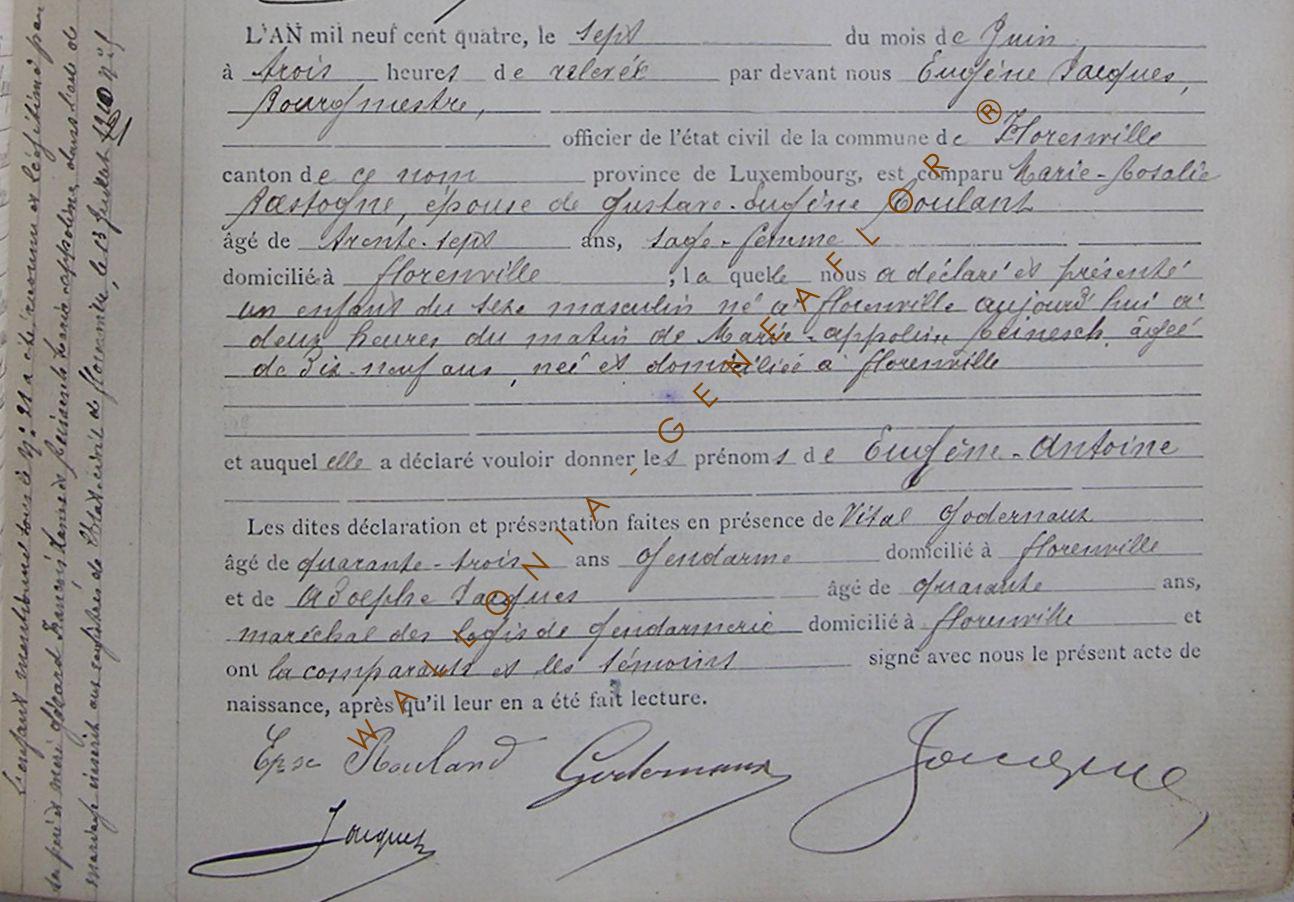 L'AN mil neuf cent quatre, le sept du mois de Juin
à trois heures de relevée par devant nous Eugène Jacques,
Bourgmestre,
officier de l'état civil de la commune de Florenville
canton de ce nom province de Luxembourg, est comparu Marie-Rosalie
Bastogne, épouse de Gustave-Eugène Roulant
âgé de trente-sept ans, sage-femme
domicilié à florenville, la quelle nous a déclaré et présenté
un enfant du sexe masculin né à florenville aujourd'hui à
deux heures du matin de Marie-appolin Reinesch, âgée
de Dix-neuf ans, née et domiciliée à florenville
et auquel elle a déclaré vouloir donner les prénoms de Eugène-Antoine
Les dites déclaration et présentation faites en présence de Vital Godernaux
âgé de quarante-trois ans Gendarme domicilié à florenville
et de Adolphe Jacques âgé de quarante ans,
maréchal des logis de Gendarmerie domicilié à florenville et
ont la comparante et les témoins signé avec nous le présent acte de
naissance, après qu'il leur en a été fait lecture.
Epse Rouland Godernaux Jacques
Jacques
L'enfant mentionné tour è n° 21 a été reconnu et légitimé par
ses père et mère Gérard François et Reinesch Marie appoline, dans l'acte de
mariage inscrit aux registres de l'Etat-civil de florenville, le 13 Juillet 1910 n°
WALLONIA-GENEAFLOR ®